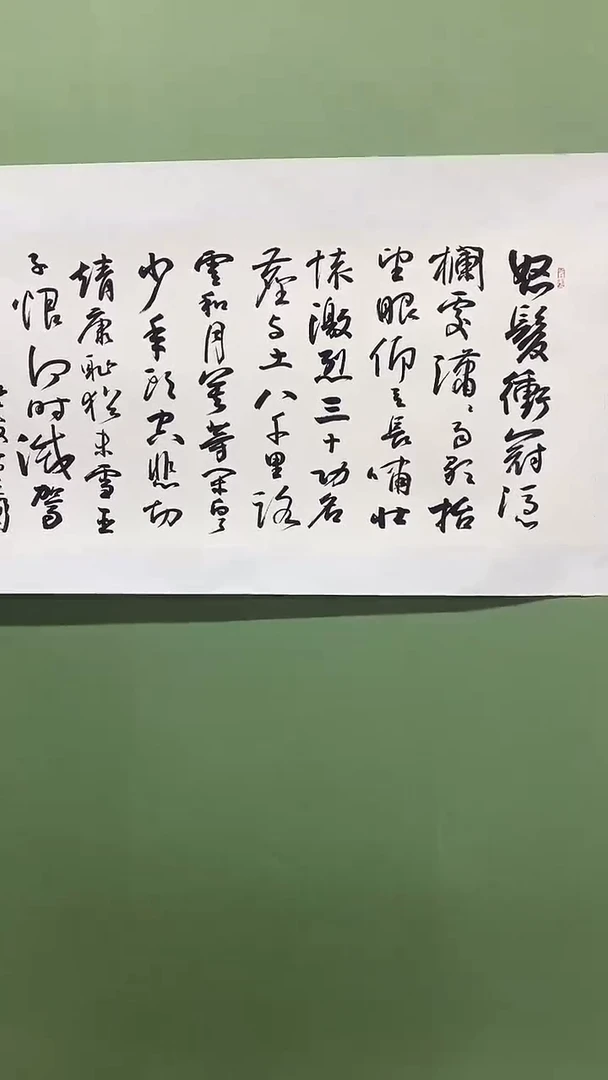 怒髮衝冠憑
欄處瀟瀟雨歇抬
望眼仰天長嘯壯
懷激烈三十功名
塵与土八千里路
雲和月莫等闲白了
少年頭空悲切
靖康恥猶未雪臣
子恨何時滅駕